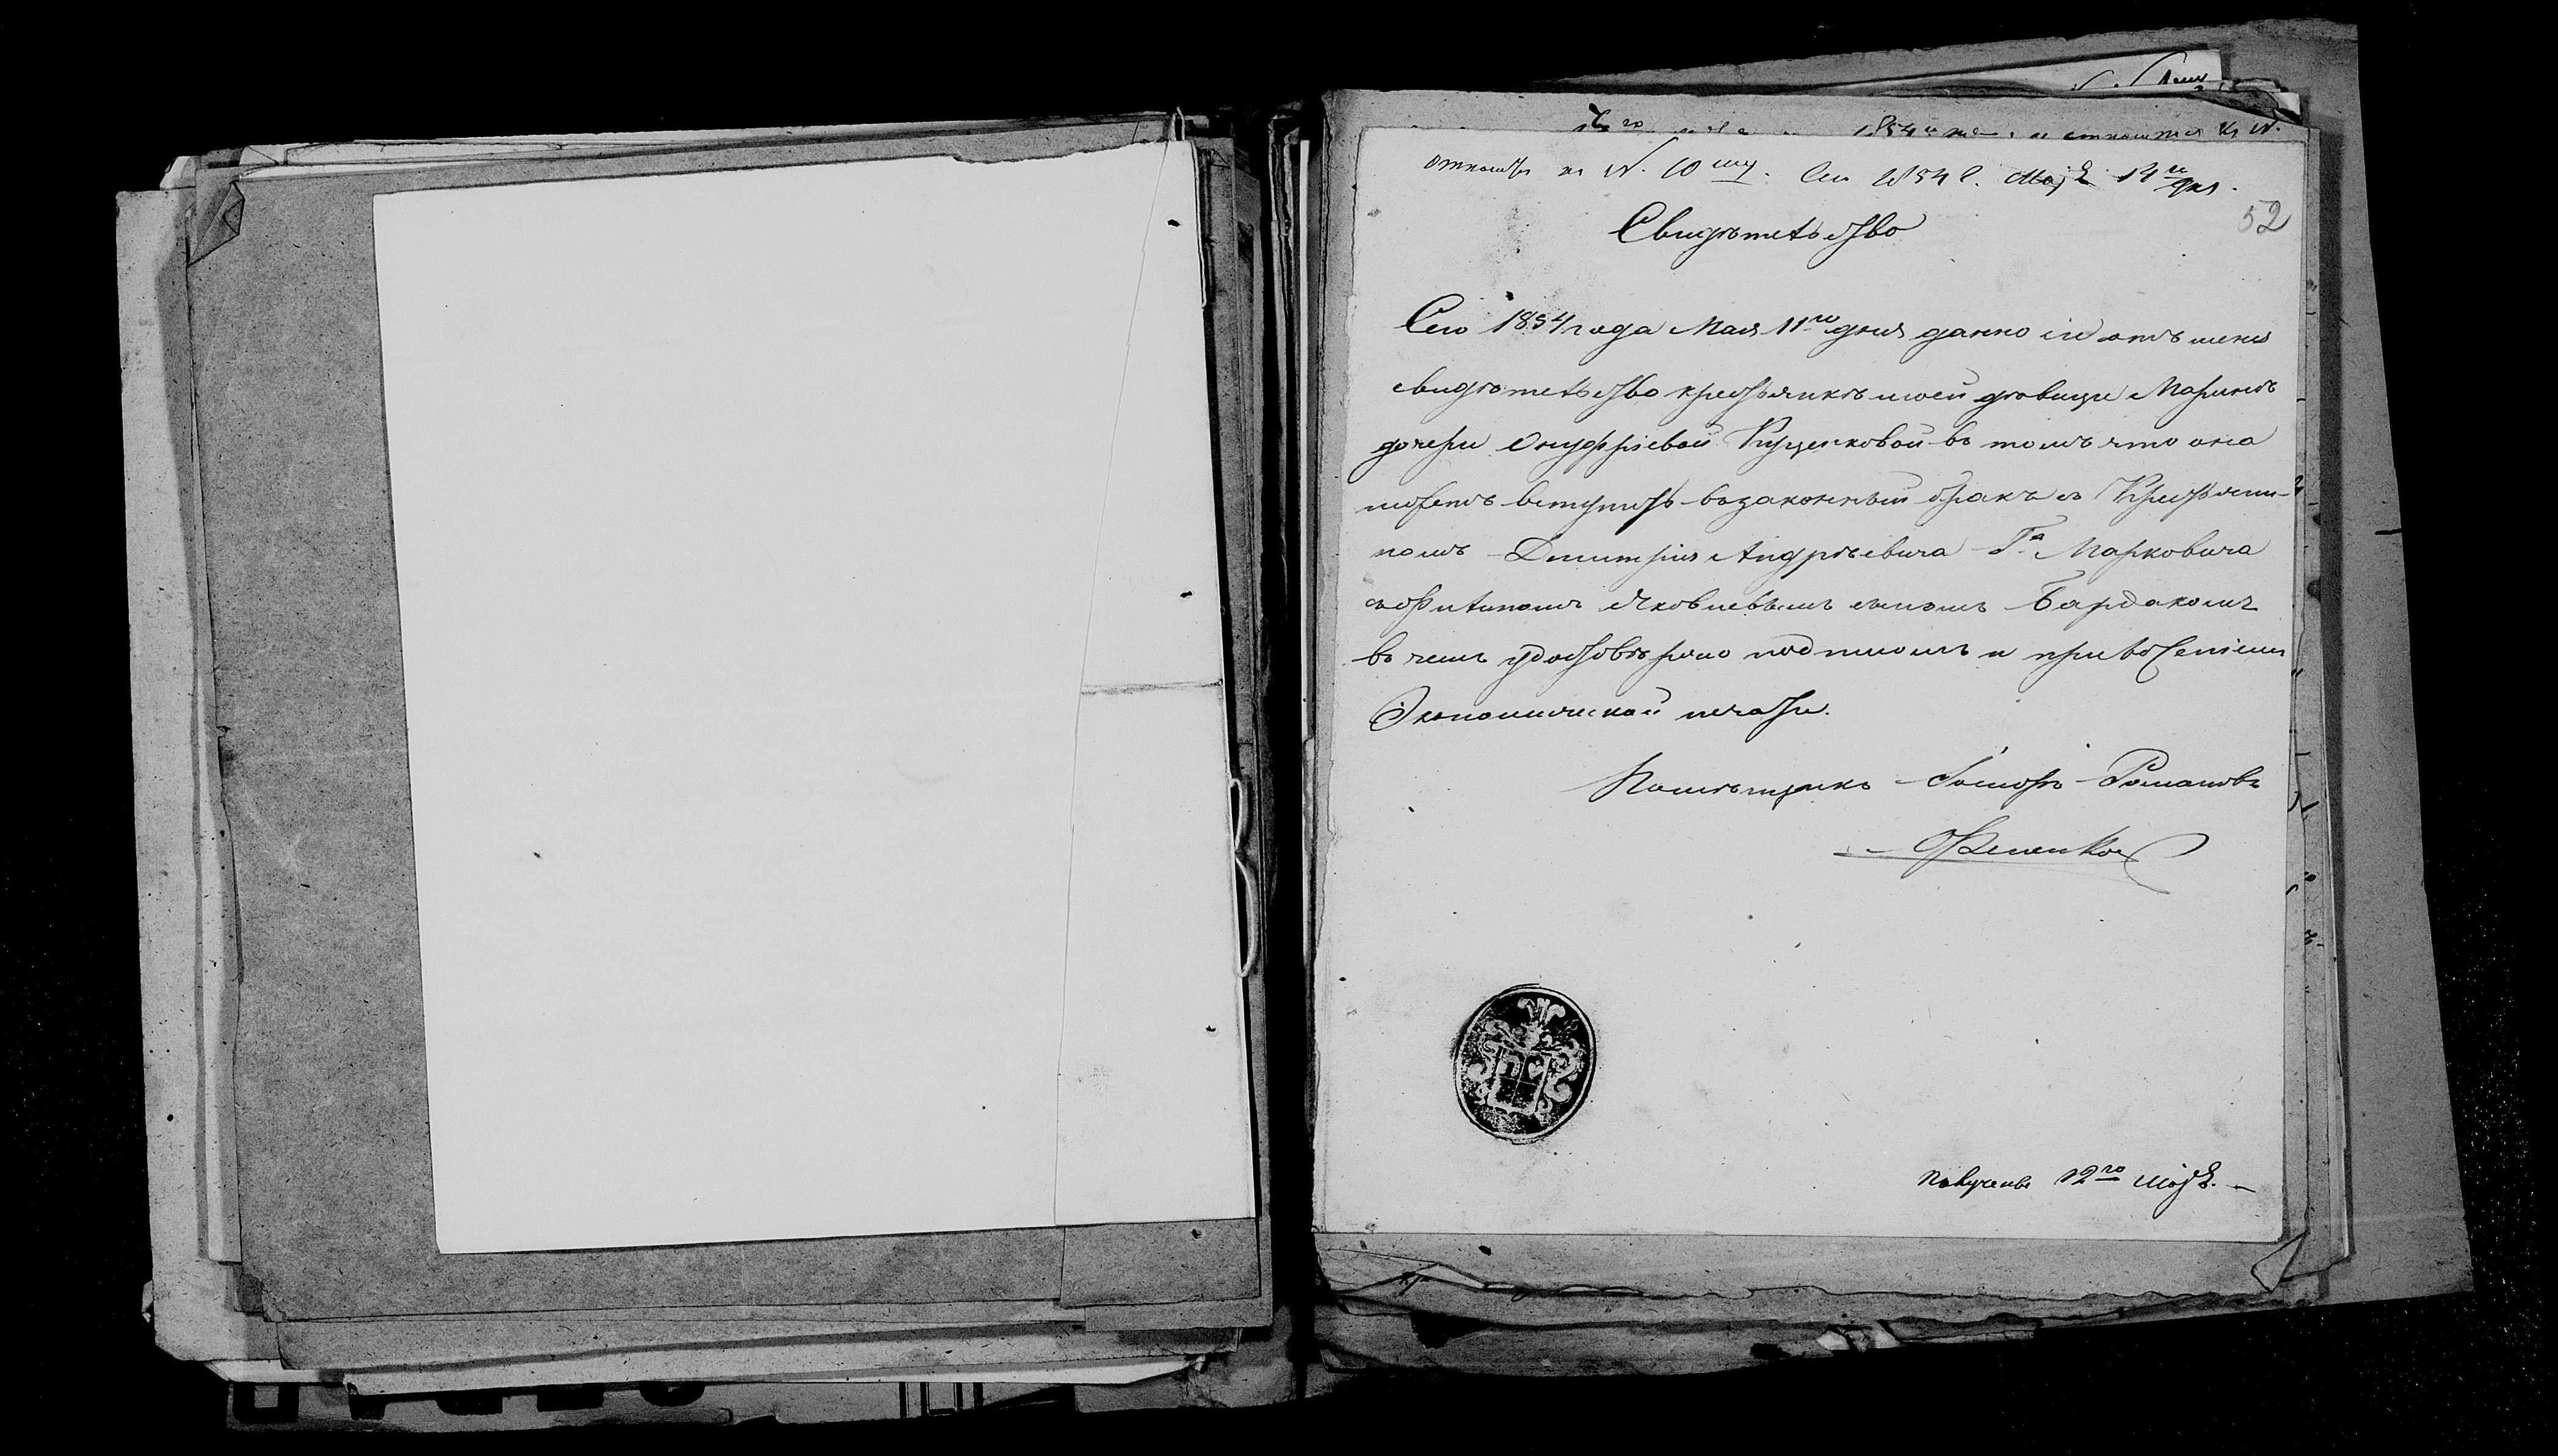 относит. къ N. 10му. Сего 1854 г. Мая 14го дня.
52
Свидѣтельство
Сего 1854 года Мая 11го дня данно сіе отъ меня
свидѣтельство крестьянкѣ моей дѣвице Маринѣ
дочери Онуфріевой Куценковой въ томъ что она
можетъ вступить въ законный бракъ съ Крестьяни-
номъ Дмитрія Андрѣевича Г.на Марковича
Яковлевымъ сыномъ Бардакомъ
въ чемъ удостовѣряю подписомъ и приложеніемъ
Экономической печати.
Помѣщикъ Романовъ
Получено 12го Мая.